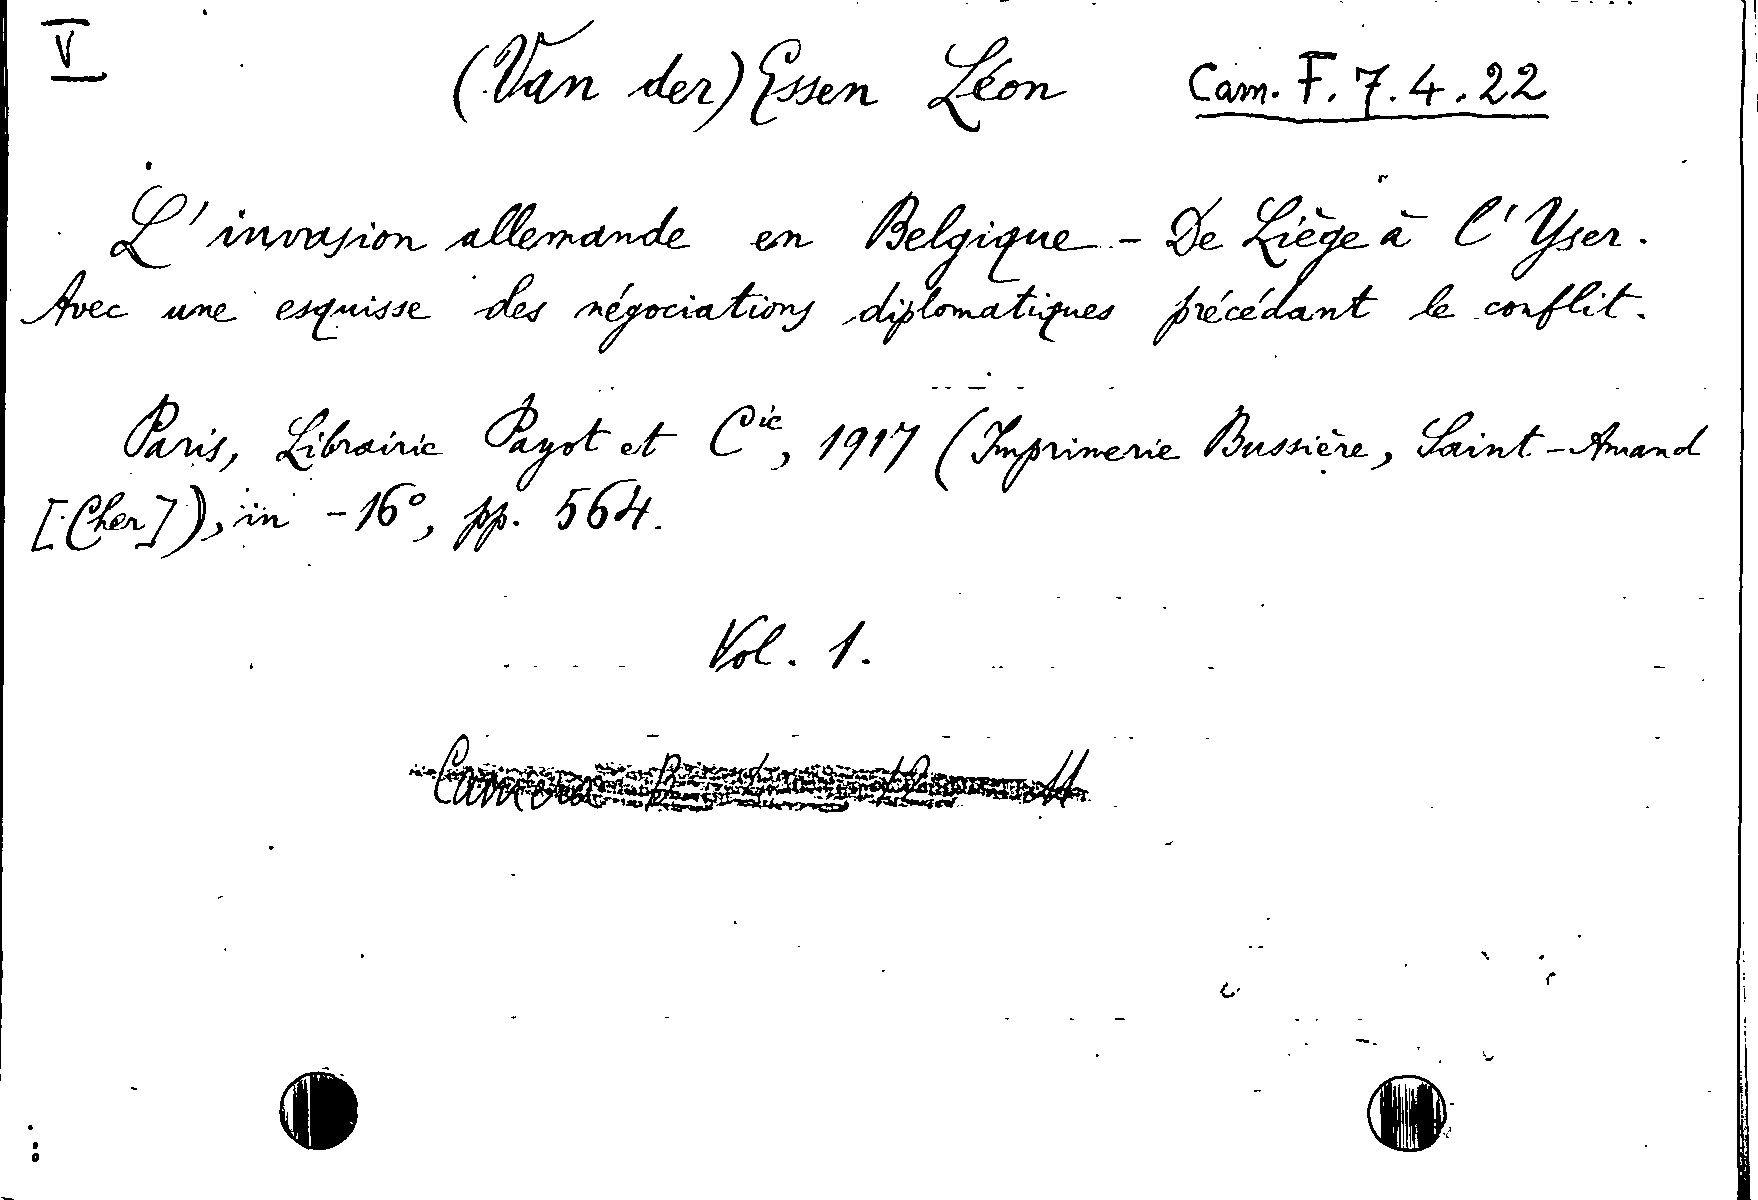 V
(Van der) Essen Léon Cam. F. 7. 4. 22
L'invasion allemande en Belgique - De Liège à l'Yser.
Avec une esquisse des négociations diplomatiques précédant le conflit.
Paris, Librairie Payot et Cie, 1917 (Imprimerie Bussière, Saint-Amand
[Cher]), in -16°, pp. 564.
Vol. 1.
Camera